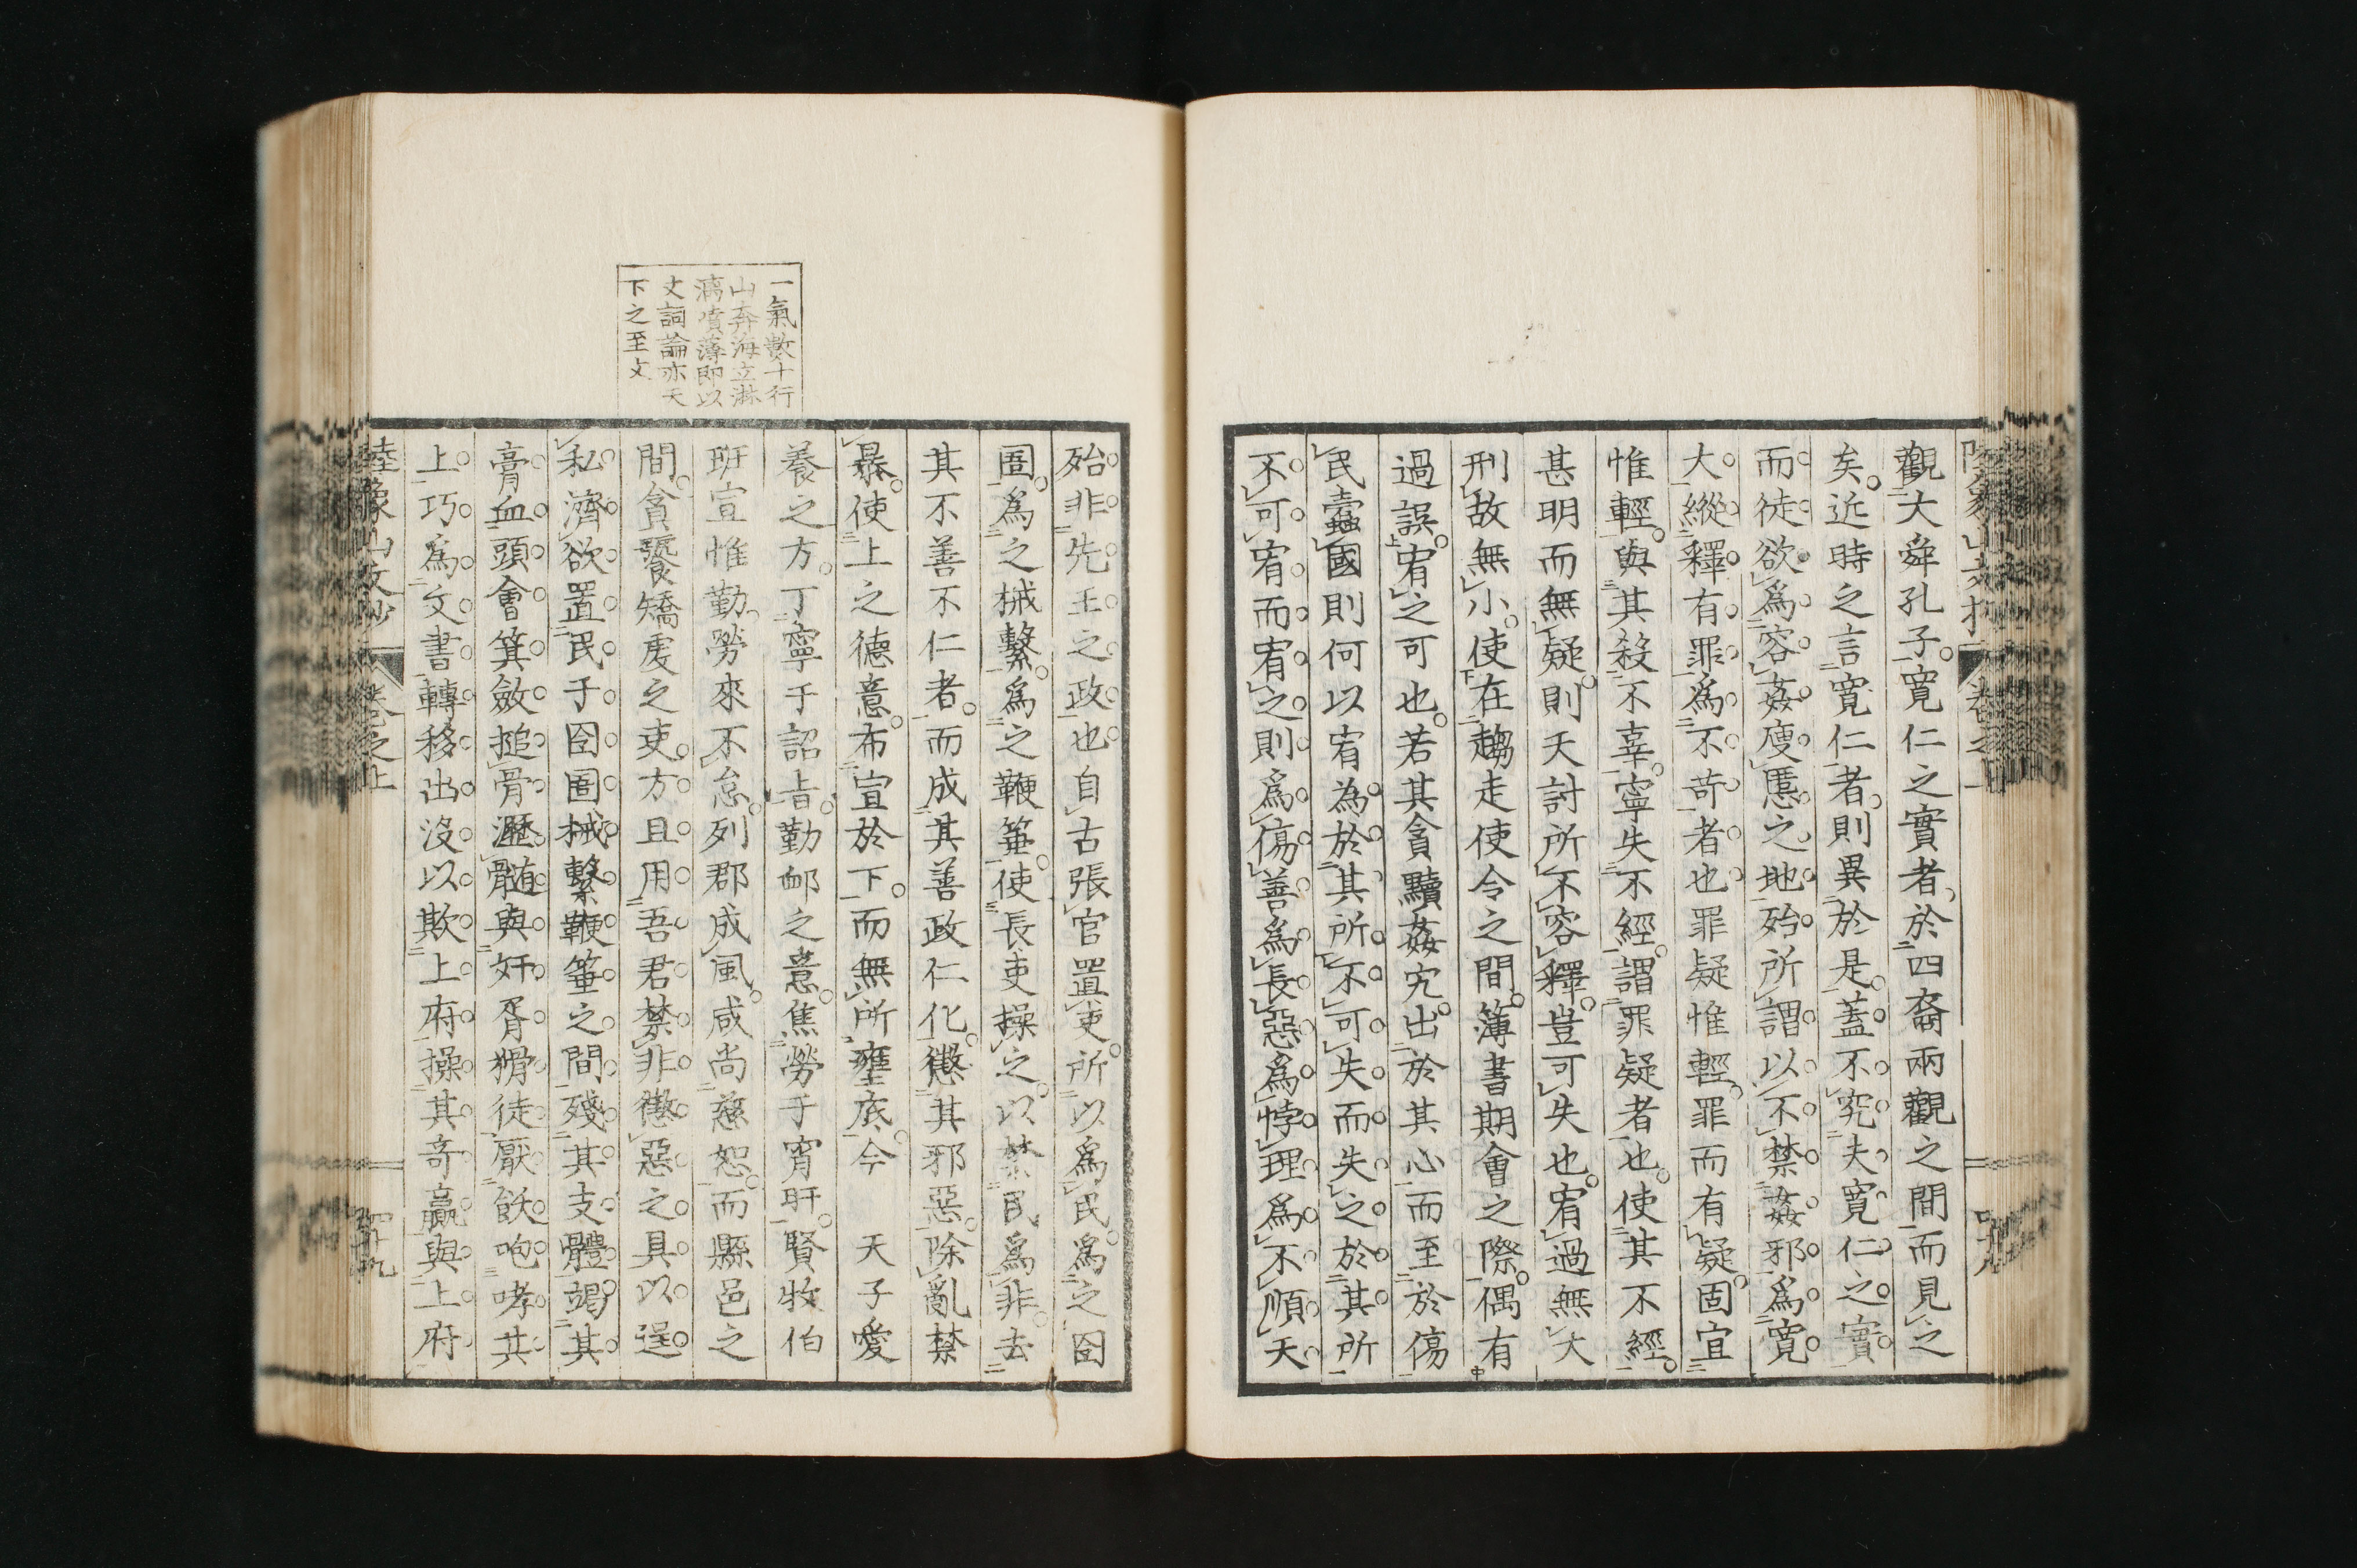 觀大舜孔子寬仁之實者於四裔兩觀之間而見之
矣近時之言寬仁者則異於是蓋不究夫寬仁之實
而徒欲爲容姦廋慝之地殆所謂以不禁姦邪爲寬
大縱釋有罪爲不苛者也罪疑惟輕罪而有疑固宜
惟輕與其殺不辜寧失不經謂罪疑者也使其不經
甚明而無疑則天討所不容釋豈可失也宥過無大
刑故無小使在趨走使令之間簿書期會之際偶有
過誤宥之可也若其貪黷姦宄出於其心而至於傷
民蠹國則何以宥為於其所不可失而失之於其所
不可宥而宥之則爲傷善爲長惡爲悖理爲不順天
殆非先王之政也自古張官置吏所以爲民爲之囹
圄爲之械繫爲之鞭箠使長吏操之以禁民爲非去
其不善不仁者而成其善政仁化懲其邪惡除亂禁
暴使上之德意布宣於下而無所壅底今 天子愛
養之方丁寧于詔旨勤卹之意焦勞于宵旰賢牧伯
班宣惟勤勞來不怠列郡成風咸尚慈恕而縣邑之
間貪饕矯虔之吏方且用吾君禁非懲惡之具以逞
私濟欲置民于囹圄械繫鞭箠之間殘其支體竭其
膏血頭會箕斂搥骨瀝髓與奸胥猾徒厭飫咆哮其
上巧爲文書轉移出沒以欺上府操其奇贏與上府
一氣數十行
山奔海立淋
漓噴薄即以
文詞論亦天
下之至文
陸象山文抄
卷之上
四十九